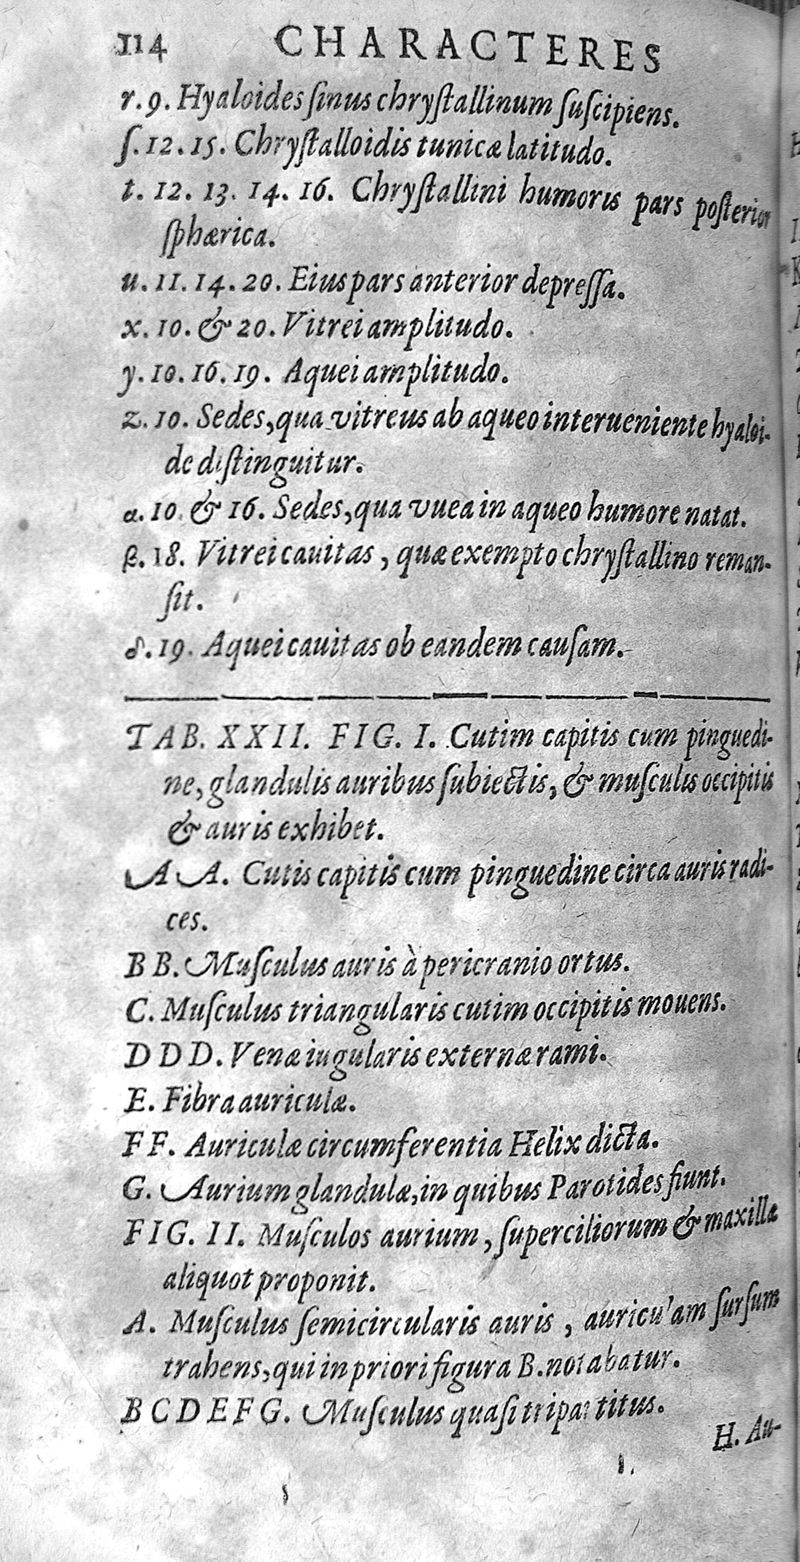 114 CHARACTERES
r. 9. Hyaloides ſinus chryſtallinum ſuſcipiens.
ſ. 12. 15. Chryſtalloidis tunicæ latitudo.
t. 12. 13. 14. 16. Chryſtallini humoris pars poſterior
ſphærica.
u. 11. 14. 20. Eius pars anterior depreſſa.
x. 10. & 20. Vitrei amplitudo.
y. 10. 16. 19. Aquei amplitudo.
z. 10. Sedes, qua vitreus ab aqueo interueniente hyaloi-
de diſtinguitur.
α. 10. & 16. Sedes, qua vuea in aqueo humore natat.
β. 18. Vitrei cauitas, quæ exempto chryſtallino reman-
ſit.
δ. 19. Aquei cauitas ob eandem cauſam.
TAB. XXII. FIG. I. Cutim capitis cum pinguedi-
ne, glandulis auribus ſubiectis, & muſculis occipitis
& auris exhibet.
A A. Cutis capitis cum pinguedine circa auris radi-
ces.
B B. Muſculus auris à pericranio ortus.
C. Muſculus triangularis cutim occipitis mouens.
D D D. Venæ iugularis externæ rami.
E. Fibra auriculæ.
F F. Auriculæ circumferentia Helix dicta.
G. Aurium glandulæ, in quibus Parotides fiunt.
FIG. II. Muſculos aurium, ſuperciliorum & maxillæ
aliquot proponit.
A. Muſculus ſemicircularis auris, auriculam ſurſum
trahens, qui in priori figura B. notabatur.
B C D E F G. Muſculus quaſi tripartitus.
H. Au-